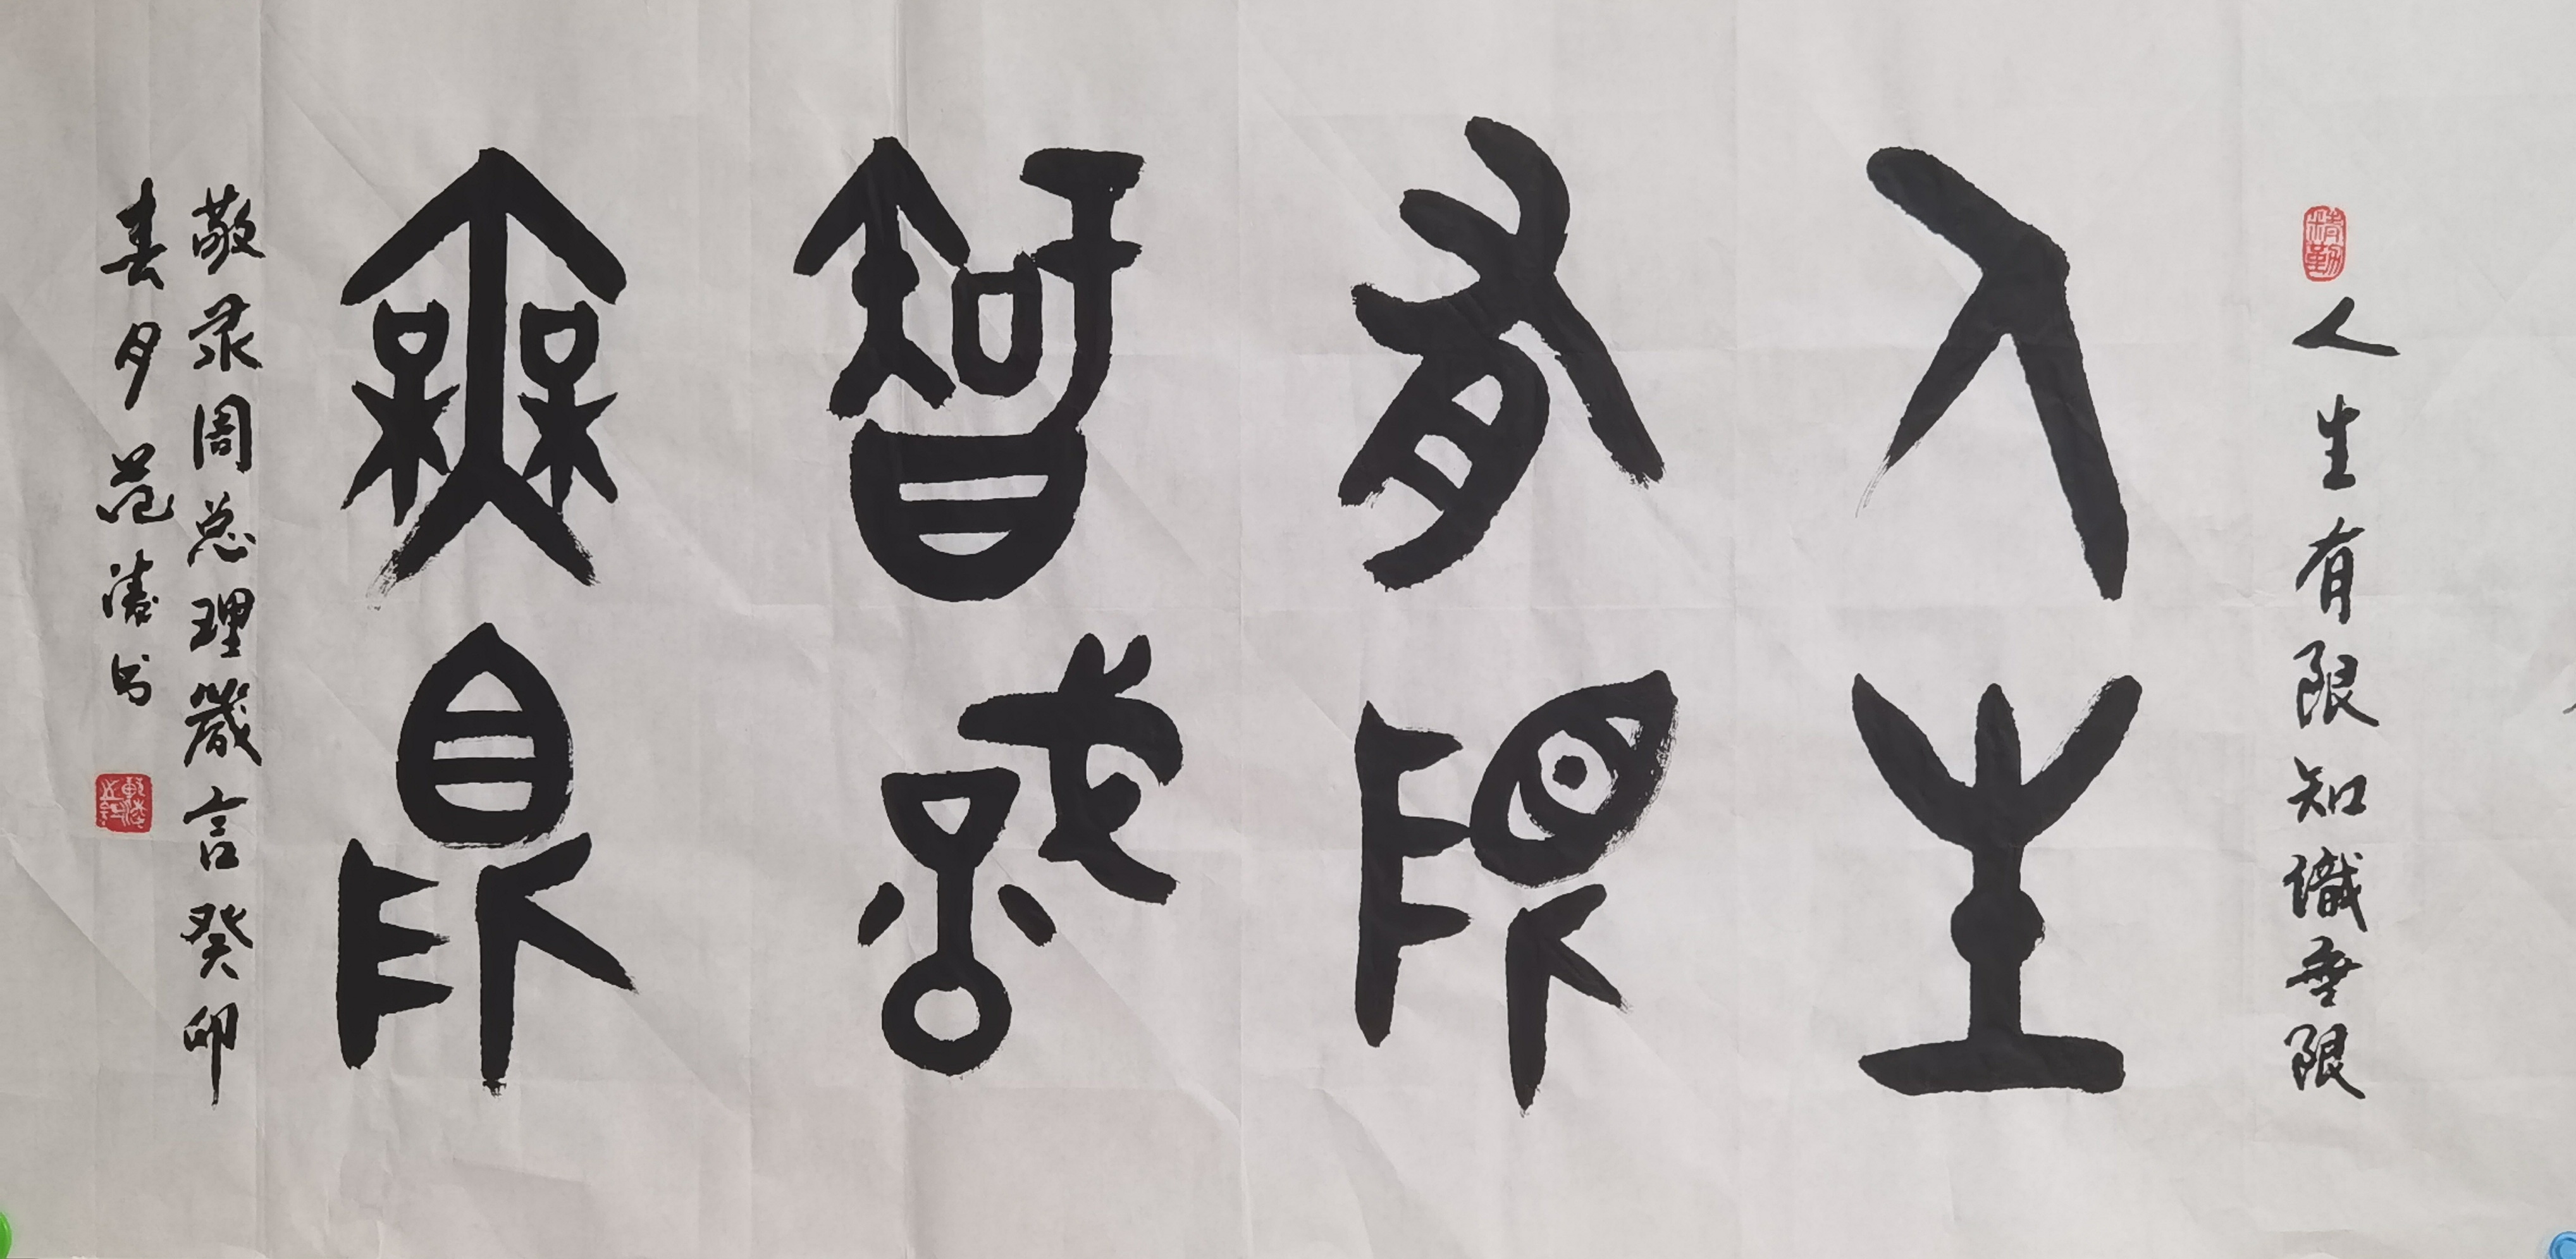 人生有限知識無限
人生
有限
智識
無限
敬录周总理箴言癸卯
春月范濤书